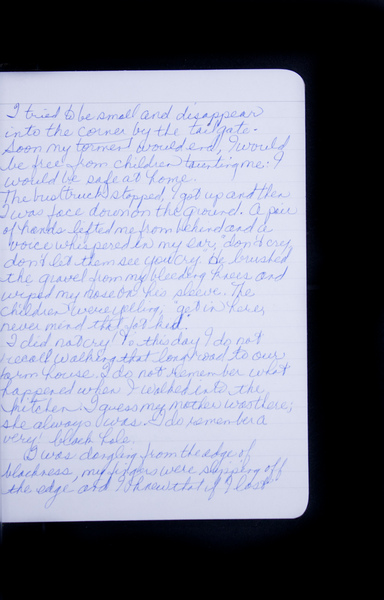 I tried to be small and disappear
into the corner by the tailgate.
Soon my torment would end, I would
be free from children taunting me. I
would be safe at home.
The bus truck stopped, I got up and then
I was face down on the ground. A pair
of hands lifted me from behind and a
voice whispered in my ear, "don't cry,
don't let them see you cry. He brushed
the gravel from my bleeding knees and
wiped my nose on his sleeve. The
children were yelling, "get in here,
never mind that fat kid."
I did not cry. To this day I do not
recall walking that long road to our
farm house. I do not remember what
happened when I walked into the
kitchen. I guess my mother was there;
she always was. I do remember a
very black hole.
I was dangling from the edge of
blackness, my fingers were slipping off
the edge, and I knew that if I lost